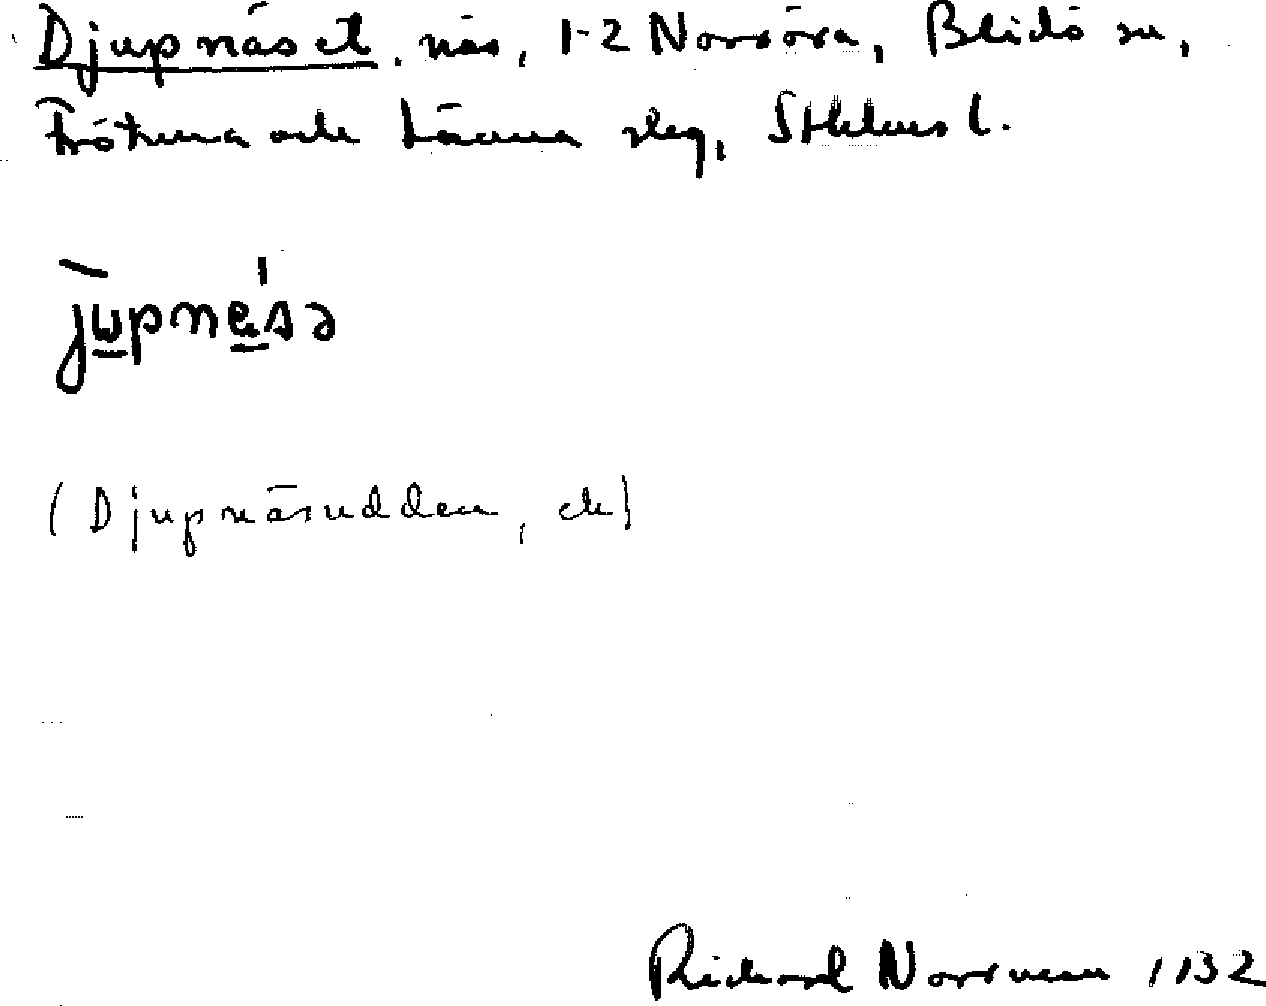 Djupnäset, näs, 1-2 Norröra, Blidö sn,
Frötuna och Länna slg, Sthlms l.
jupnäsə
(Djupnäsudden, ek)
Richard Norrman 1932